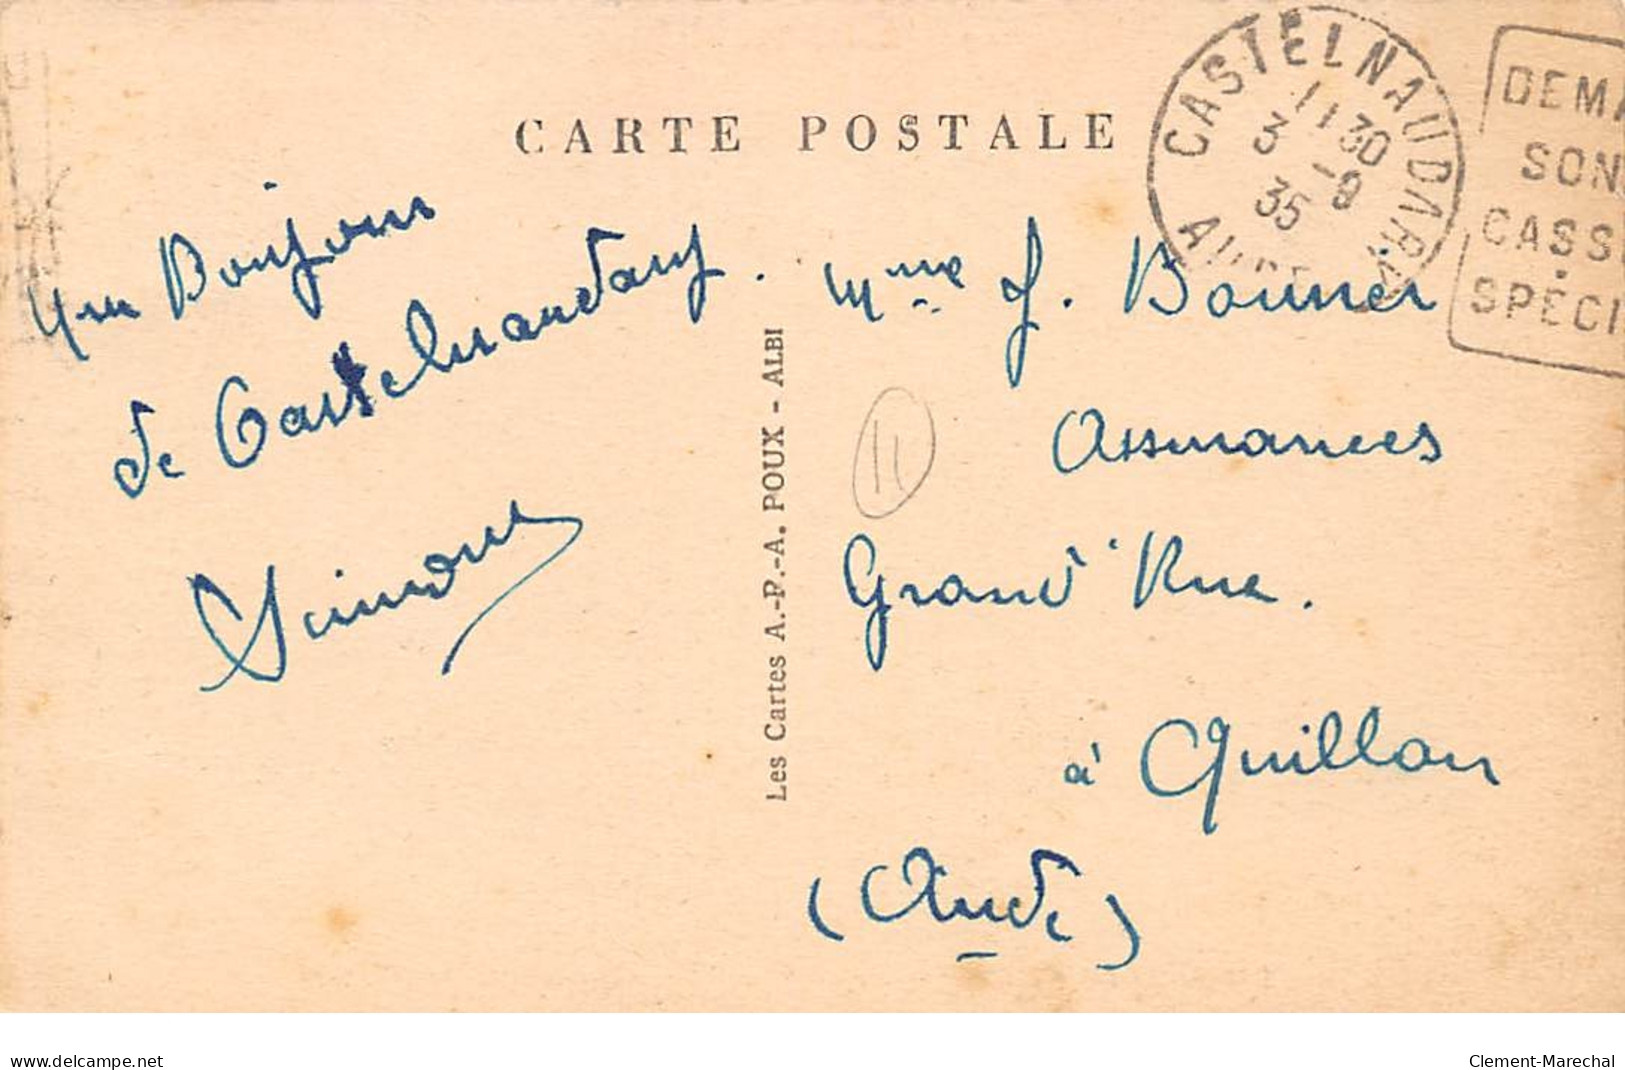 CARTE POSTALE
CASTELNAUDARY
AUDE
11 30
3 -9
35
DEMA
SON
CASS
SPÉCI
Un Bonjour
de Castelnaudary.
Simone
Les Cartes A.-P.-A. POUX - ALBI
11
Mme J. Bonner
Assurances
Grand' Rue.
à Quillan
(Aude)
www.delcampe.net
Clement-Marechal